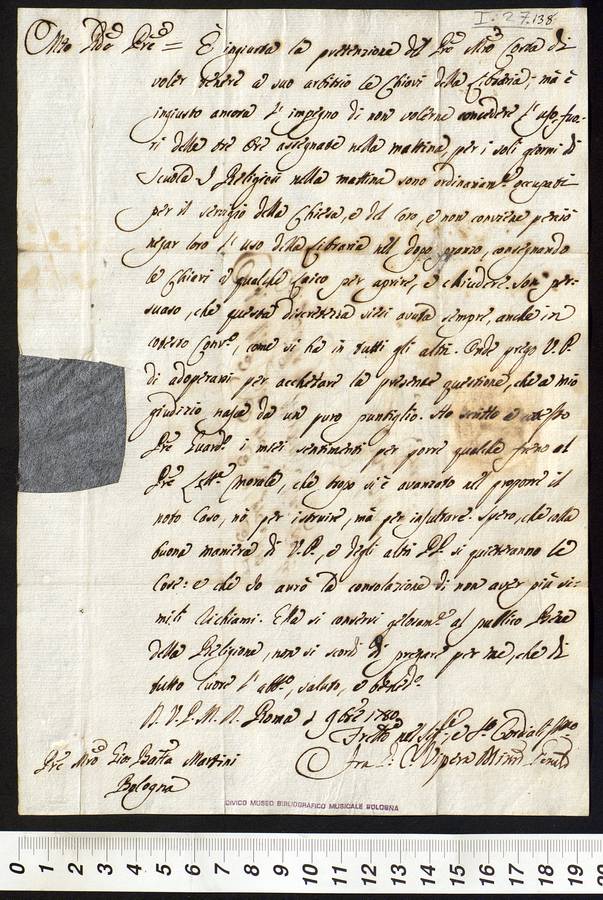 I. 27.138.
Mto Rdo Pre = È ingiusta la pretenzione del Pre Mro Corda di
voler tenere a suo arbitrio le Chiavi della Libraria; mà è
ingiusto ancora l'impegno di non volerne concedere l'uso, fuo-
ri delle tre Ore assegnate nella mattina, per i soli giorni di
Scuola. I Religiosi nella mattina sono ordinariamte occupati
per il servizio della Chiesa, e del Coro, e non conviene però
negar loro l'uso della Libraria nel dopo pranzo, consegnando
le Chiavi a qualche Laico per aprire, e chiudere. Son per-
suaso, che questa discretezza siasi avuta sempre, anche in
cotesto Convto, come si hà in tutti gli altri. Onde prego V. P.
di adoperarsi per acchetare la presente questione, che a mio
giudizio nasce da un puro puntiglio. Ho scritto a cotesto
Pre Guardo i miei sentimenti per porre qualche freno al
Pre Lettre Morale, che tropo si è avanzato nel proporre il
noto Caso, nò per istruire, mà per insultare. Spero, che colla
buona maniera di V. P., e degli altri PP. si quieteranno le
Cose: e che Io avrò la consolazione di non aver più si-
mili Richiami. Ella si conservi al publico Bene
della Religione, non si scordi di pregare per me, che di
tutto cuore l'abbo, saluto, e benedo
D. V. P. M. R. Roma 1 9bre 1780.
Frello nel Sige, e So Cordialissmo
Fra Vipera Minro Genle
Pre Mro Gio: Batta Martini
Bologna
CIVICO MUSEO BIBLIOGRAFICO MUSICALE BOLOGNA
0 1 2 3 4 5 6 7 8 9 10 11 12 13 14 15 16 17 18 19 20